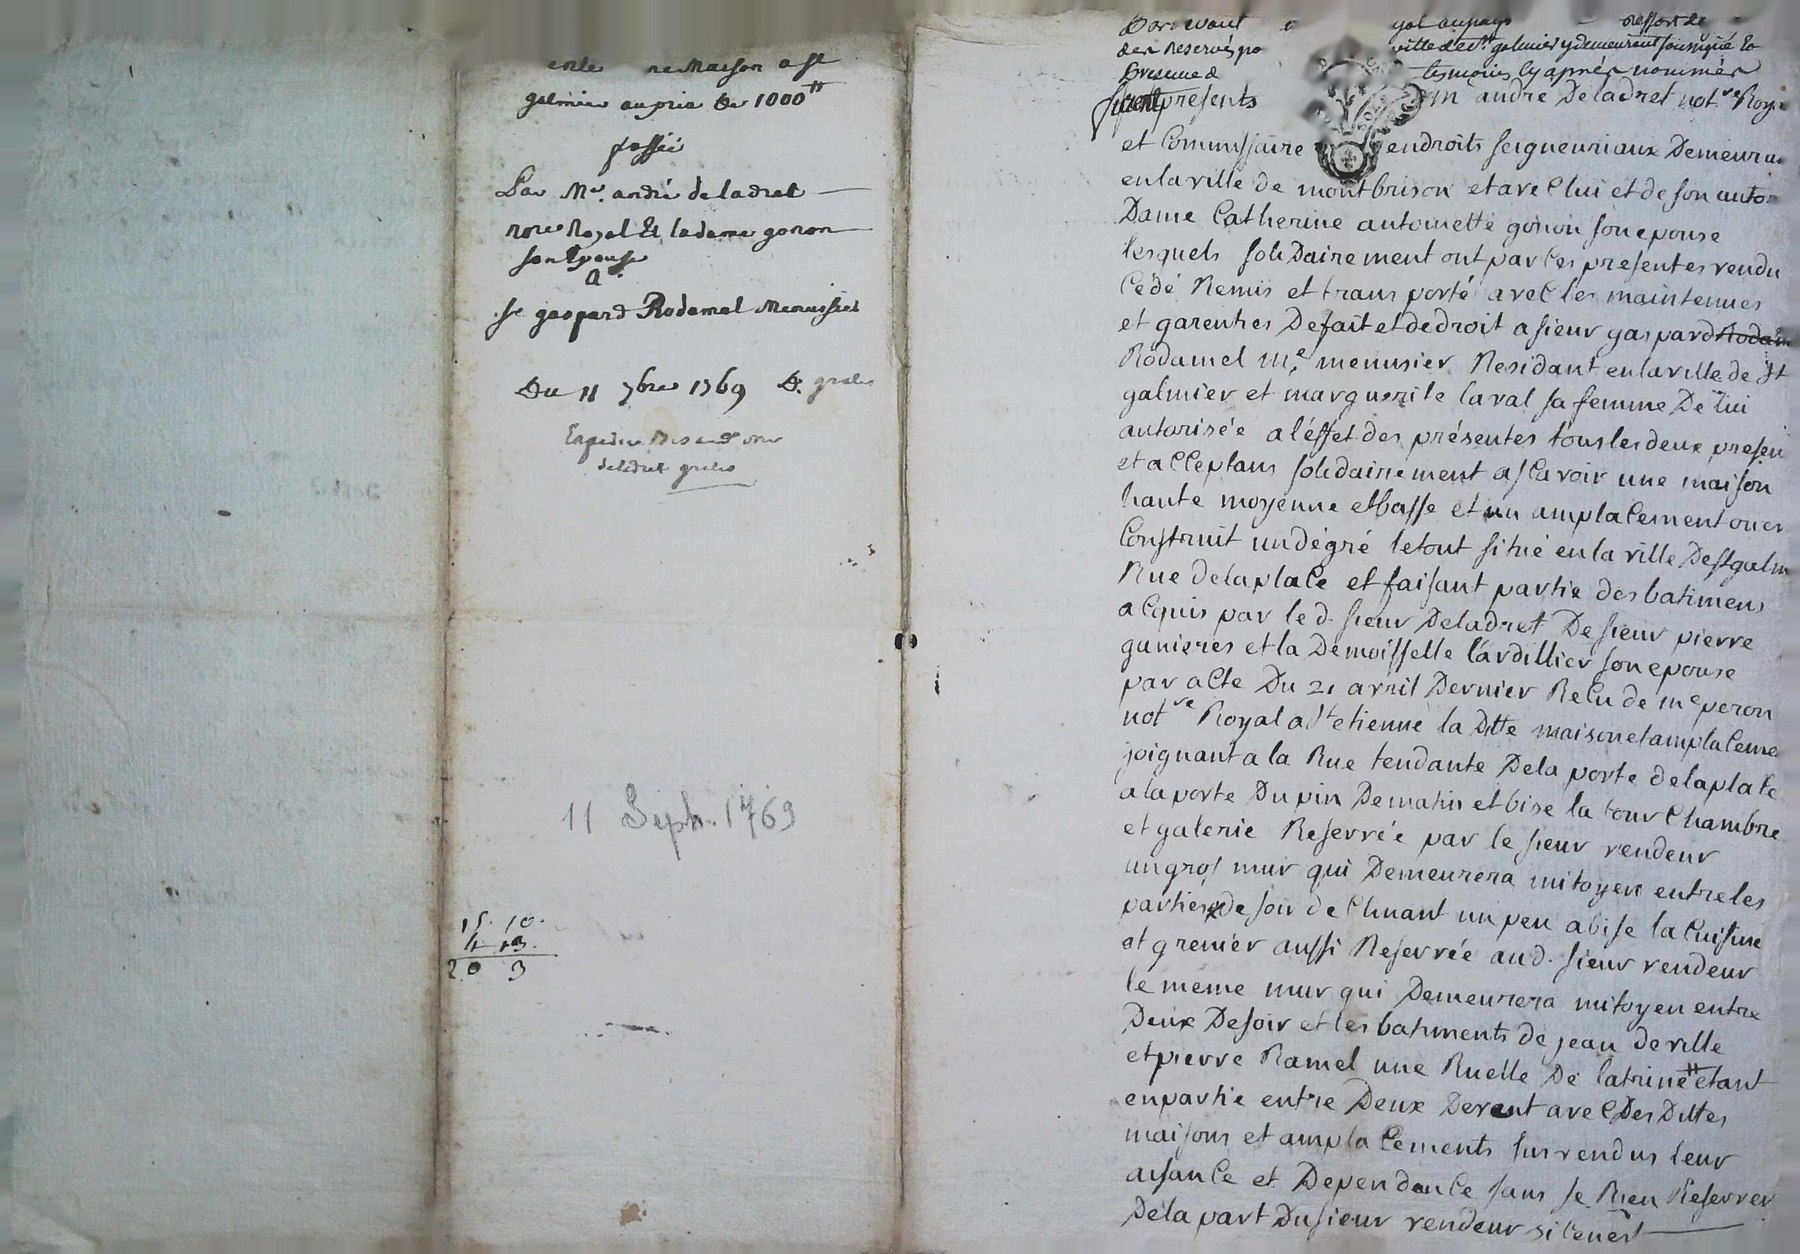 ente ne Maison a St
galmier au prix de 1000 tt
passée
Par Mr. andré deladret
nore Royal Et la dame gonon
son Epouse
A
Sr gaspard Rodamel Menuisier
Du 11 7bre 1769 D. gratis
deladret gratis
11 Septb. 1769
15. 10.
4. 13.
20 3
Pardevant yal au pays ressort de
des Reservés po ville de st galmier y demeurant soussigné Et
presence d temoins cy aprnés nommés
furent presents andré Deladret notre Roya
et Commissaire endroits seigneuriaux Demeuran
en la ville de montbrison et avec lui et de son autor
Dame Catherine antoinette gonon son epouse
lesquels soliDairement ont par ces presentes vendu
Cédé Remis et transporté avec les maintenues
et garenties De fait et de droit a sieur gaspard Rodam
Rodamel me. menusier Residant en la ville de St
galmier et marguerite laval sa femme De lui
autorisée a l'éffet des présentes tous les deux presen
et acceptans solidairement ascavoir une maison
haute moyenne et basse et un amplacement ou es
Construit un dégré le tout situé en la ville De St galm
Rue de la place et faisant partie des batimens
acquis par led. sieur Deladret De sieur pierre
ganieres et la Demoisselle lardillier son epouse
par acte Du 21 avril Dernier Recu de me peron
notre Royal a St etienne la Ditte maison et amplaceme
joignant a la Rue tendante De la porte de la place
a la porte Du pin De matin et bise la tour Chambre
et galerie Reservée par le sieur vendeur
un gros mur qui Demeurera mitoyen entre les
parties de soir declinant un peu a bise la Cuisine
et grenier aussi Reservée aud. sieur vendeur
le meme mur qui Demeurera mitoyen entre
Deux De soir et les batiments de jean deville
et pierre Ramel une Ruelle De latrine etant
en partie entre Deux De vent avec Des Dittes
maisons et amplacements sus vendus leur
aisance et Dependance sans se Rien Reserver
De la part Du sieur vendeur si ce n'est